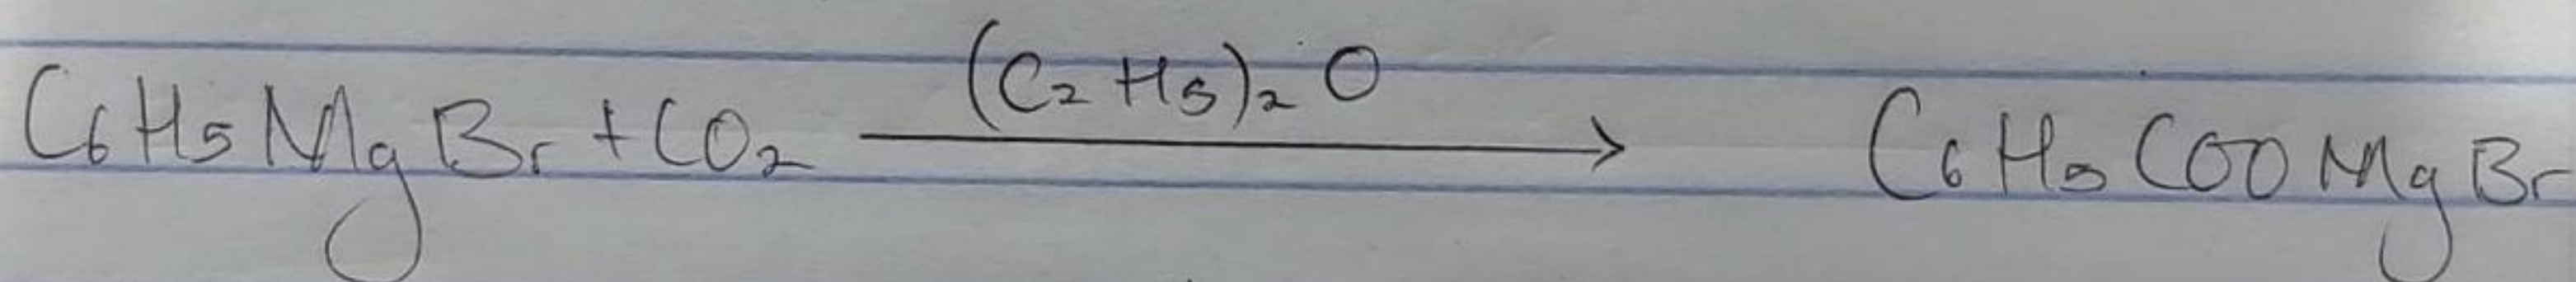 C6H5MgBr + CO2 (C2H5)2O → C6H5COOMgBr